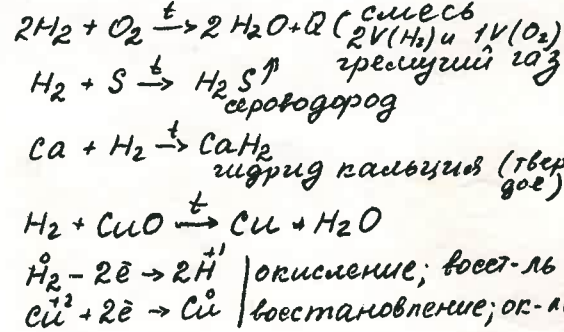 2H₂ + O₂ →ᵗ 2H₂O + Q (смесь
2V(H₂) и 1V(O₂)
гремучий газ
H₂ + S →ᵗ H₂S↑
сероводород
Ca + H₂ →ᵗ CaH₂
гидрид кальция (твер
дое)
H₂ + CuO →ᵗ Cu + H₂O
H₂⁰ – 2ē → 2H⁺¹ | окисление; восст-ль
Cu⁺² + 2ē → Cu⁰ | восстановление; ок-л